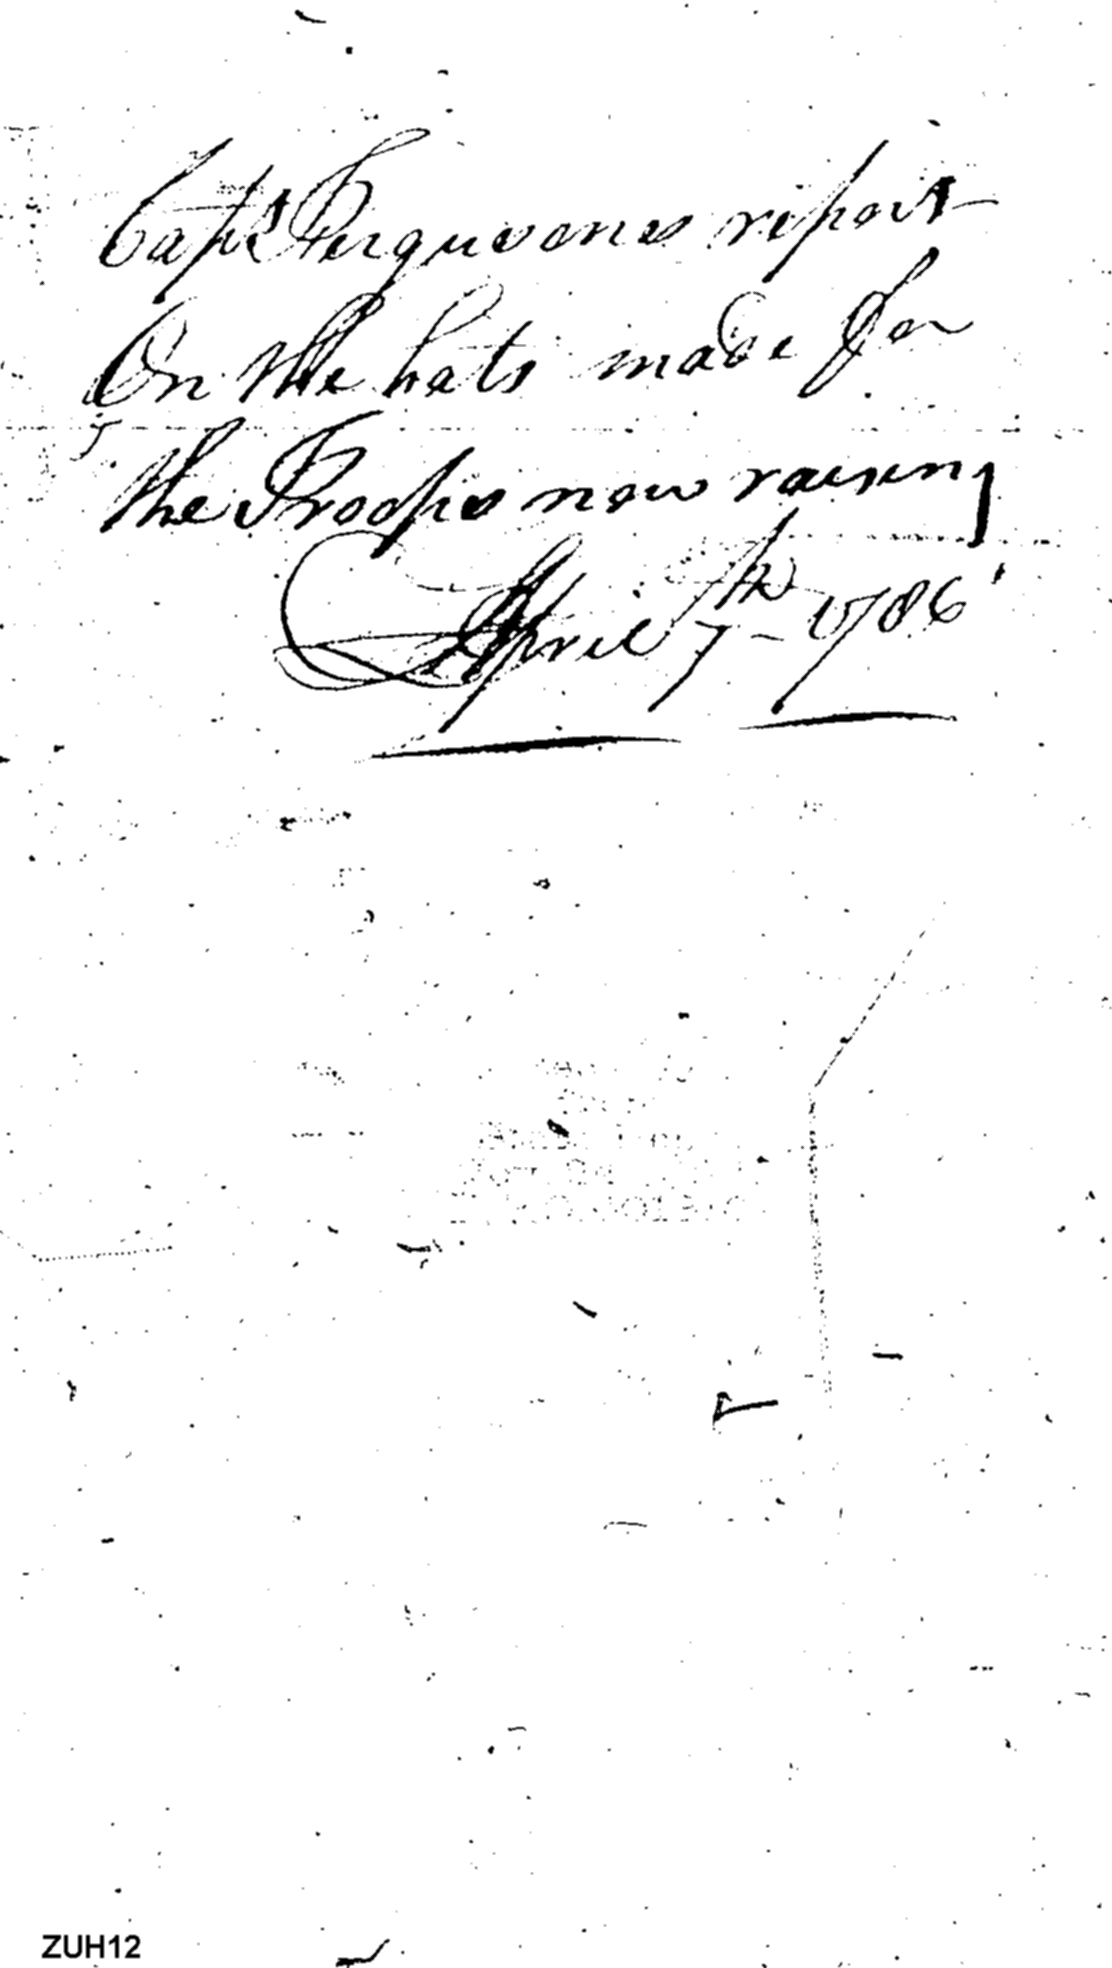 Capt Fergusones report
On the hats made for
the Troops now raising
April 7th 1786
ZUH12